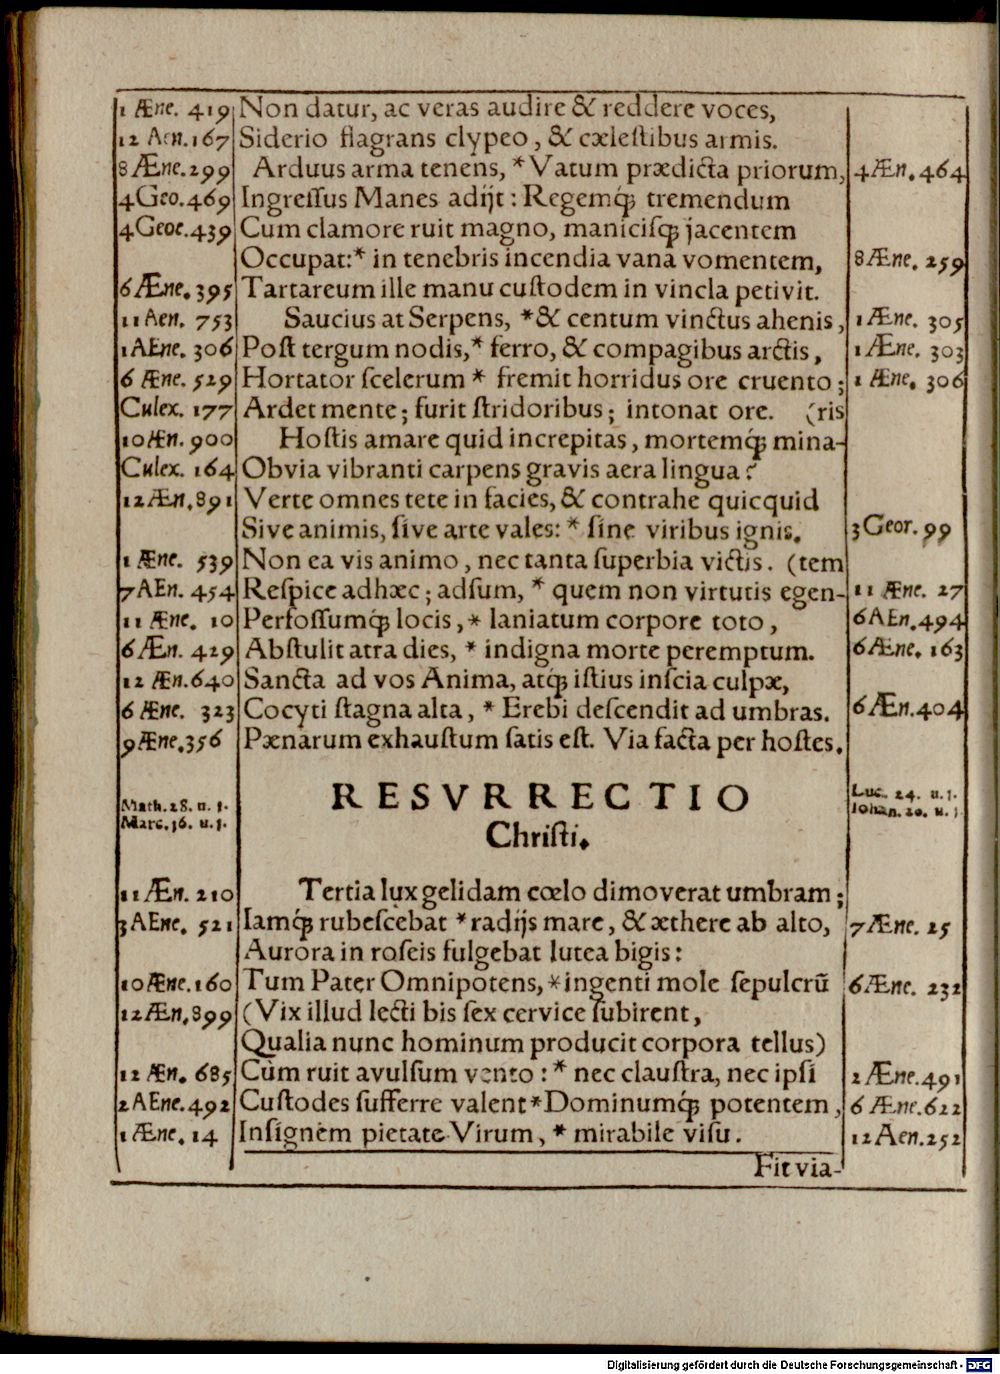 1 Æne. 419 Non datur, ac veras audire & reddere voces,
12 Aen. 167 Siderio flagrans clypeo, & cælestibus armis.
8 Æne. 299 Arduus arma tenens, * Vatum prædicta priorum, 4 Æn. 464
4 Geo. 469 Ingreſſus Manes adijt : Regemq́ꝫ tremendum
4 Geoe. 439 Cum clamore ruit magno, maniciſqꝫ jacentem
Occupat:* in tenebris incendia vana vomentem, 8 Æne. 259
6 Æne. 395 Tartareum ille manu cuſtodem in vincla petivit.
11 Aen. 753 Saucius at Serpens, * & centum vinctus ahenis, 1 Æne. 305
1 AEne. 306 Poſt tergum nodis,* ferro, & compagibus arctis, 1 Æne. 303
6 Æne. 529 Hortator ſcelerum * fremit horridus ore cruento; 1 Æne. 306
Culex. 177 Ardet mente; furit ſtridoribus; intonat ore. (ris
10 Æn. 900 Hoſtis amare quid increpitas, mortemq́ꝫ mina-
Culex. 164 Obvia vibranti carpens gravis aera lingua?
12 Æn. 891 Verte omnes tete in facies, & contrahe quicquid
Sive animis, ſive arte vales: * ſine viribus ignis. 3 Geor. 99
1 Æne. 539 Non ea vis animo, nec tanta ſuperbia victis. (tem
7 AEn. 454 Reſpice adhæc; adſum, * quem non virtutis egen- 11 Æne. 27
11 Æne. 10 Perfoſſumq́ꝫ locis, * laniatum corpore toto, 6 AEn. 494
6 Æn. 429 Abſtulit atra dies, * indigna morte peremptum. 6 Æne. 163
12 Æn. 640 Sancta ad vos Anima, atq́ꝫ iſtius inſcia culpæ,
6 Æne. 323 Cocyti ſtagna alta, * Erebi deſcendit ad umbras. 6 Æn. 404
9 Æne. 356 Pænarum exhauſtum ſatis eſt. Via facta per hoſtes.
RESVRRECTIO
Math. 28. u. 1. Luc. 24. u. 1.
Marc. 16. u. 1. Iohan. 20. u. 1
Chriſti.
11 Æn. 210 Tertia lux gelidam cœlo dimoverat umbram;
3 AEne. 521 Iamq́ꝫ rubeſcebat * radijs mare, & æthere ab alto, 7 Æne. 25
Aurora in roſeis fulgebat lutea bigis:
10 Æne. 160 Tum Pater Omnipotens, * ingenti mole ſepulcrũ 6 Æne. 232
12 Æn. 899 (Vix illud lecti bis ſex cervice ſubirent,
Qualia nunc hominum producit corpora tellus)
12 Æn. 685 Cùm ruit avulſum vento : * nec clauſtra, nec ipſi 2 Æne. 491
2 AEne. 492 Cuſtodes ſufferre valent * Dominumq́ꝫ potentem, 6 Æne. 622
1 Æne. 14 Inſignem pietate Virum, * mirabile viſu. 12 Aen. 252
Fit via-
Digitalisierung gefördert durch die Deutsche Forschungsgemeinschaft - DFG